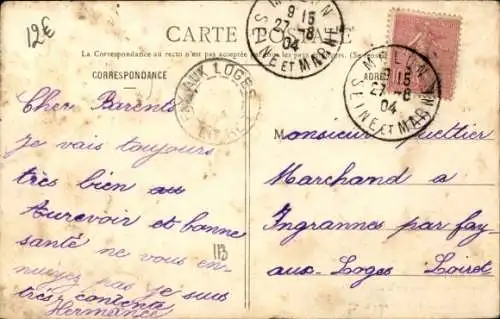 12€
CARTE POSTALE
La Correspondance au recto n'est pas acceptée
CORRESPONDANCE
MELUN
9 15
27-8
04
SEINE ET MARNE
MELUN
9 15
27-8
04
SEINE ET MARNE
AUX LOGES
Cher Parents
Je vais toujours
très bien au
Aurevoir et bonne
santé ne vous en-
nuiyez pas je suis
très contente
Hermance
113
Monsieur
Marchand a
Ingrannes par fay-
aux-Loges Loiret